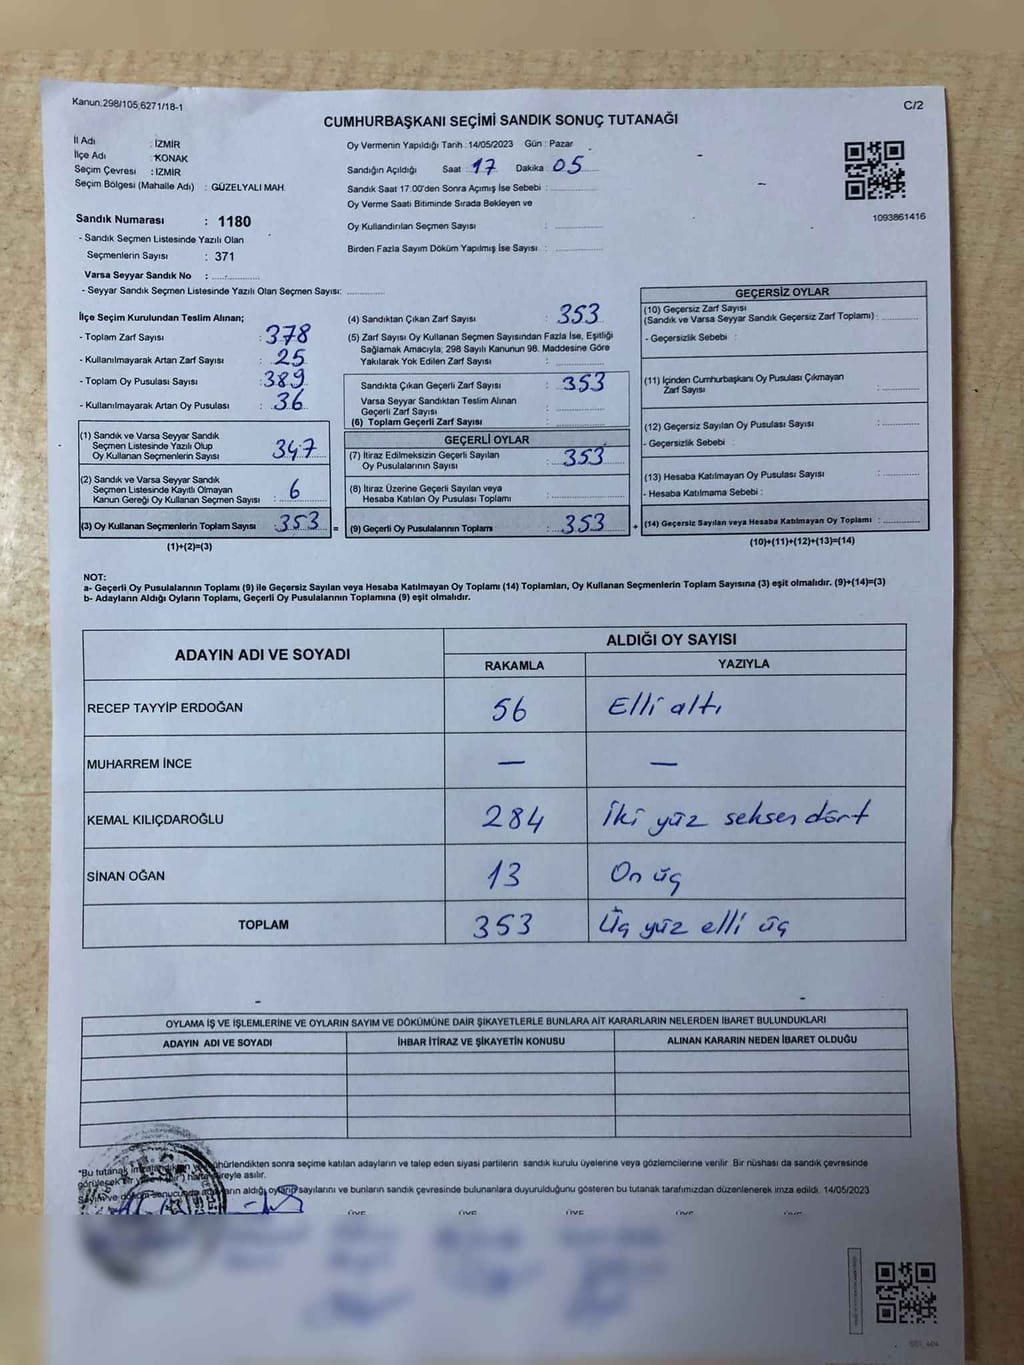 Kanun:298/105;6271/18-1
C/2
CUMHURBAŞKANI SEÇİMİ SANDIK SONUÇ TUTANAĞI
İl Adı : İZMİR
İlçe Adı : KONAK
Seçim Çevresi : İZMİR
Seçim Bölgesi (Mahalle Adı) : GÜZELYALI MAH.
Sandık Numarası : 1180
- Sandık Seçmen Listesinde Yazılı Olan
Seçmenlerin Sayısı : 371
Varsa Seyyar Sandık No :
- Seyyar Sandık Seçmen Listesinde Yazılı Olan Seçmen Sayısı:
Oy Vermenin Yapıldığı Tarih : 14/05/2023 Gün : Pazar
Sandığın Açıldığı Saat 17 Dakika 05
Sandık Saat 17:00'den Sonra Açımış İse Sebebi :
Oy Verme Saati Bitiminde Sırada Bekleyen ve
Oy Kullandırılan Seçmen Sayısı :
Birden Fazla Sayım Döküm Yapılmış İse Sayısı :
1093861416
İlçe Seçim Kurulundan Teslim Alınan;
- Toplam Zarf Sayısı : 378
- Kullanılmayarak Artan Zarf Sayısı : 25
- Toplam Oy Pusulası Sayısı : 389
- Kullanılmayarak Artan Oy Pusulası : 36
(1) Sandık ve Varsa Seyyar Sandık
Seçmen Listesinde Yazılı Olup
Oy Kullanan Seçmenlerin Sayısı 347
(2) Sandık ve Varsa Seyyar Sandık
Seçmen Listesinde Kayıtlı Olmayan
Kanun Gereği Oy Kullanan Seçmen Sayısı : 6
(3) Oy Kullanan Seçmenlerin Toplam Sayısı : 353 =
(1)+(2)=(3)
(4) Sandıktan Çıkan Zarf Sayısı : 353
(5) Zarf Sayısı Oy Kullanan Seçmen Sayısından Fazla İse, Eşitliği
Sağlamak Amacıyla; 298 Sayılı Kanunun 98. Maddesine Göre
Yakılarak Yok Edilen Zarf Sayısı :
Sandıkta Çıkan Geçerli Zarf Sayısı : 353
Varsa Seyyar Sandıktan Teslim Alınan
Geçerli Zarf Sayısı :
(6) Toplam Geçerli Zarf Sayısı :
GEÇERLİ OYLAR
(7) İtiraz Edilmeksizin Geçerli Sayılan
Oy Pusulalarının Sayısı : 353
(8) İtiraz Üzerine Geçerli Sayılan veya
Hesaba Katılan Oy Pusulası Toplamı :
(9) Geçerli Oy Pusulalarının Toplamı : 353 +
GEÇERSİZ OYLAR
(10) Geçersiz Zarf Sayısı
(Sandık ve Varsa Seyyar Sandık Geçersiz Zarf Toplamı) :
- Geçersizlik Sebebi :
(11) İçinden Cumhurbaşkanı Oy Pusulası Çıkmayan
Zarf Sayısı :
(12) Geçersiz Sayılan Oy Pusulası Sayısı :
- Geçersizlik Sebebi :
(13) Hesaba Katılmayan Oy Pusulası Sayısı :
- Hesaba Katılmama Sebebi :
(14) Geçersiz Sayılan veya Hesaba Katılmayan Oy Toplamı :
(10)+(11)+(12)+(13)=(14)
NOT:
a- Geçerli Oy Pusulalarının Toplamı (9) ile Geçersiz Sayılan veya Hesaba Katılmayan Oy Toplamı (14) Toplamları, Oy Kullanan Seçmenlerin Toplam Sayısına (3) eşit olmalıdır. (9)+(14)=(3)
b- Adayların Aldığı Oyların Toplamı, Geçerli Oy Pusulalarının Toplamına (9) eşit olmalıdır.
ADAYIN ADI VE SOYADI ALDIĞI OY SAYISI
RAKAMLA YAZIYLA
RECEP TAYYİP ERDOĞAN 56 Elli altı
MUHARREM İNCE — —
KEMAL KILIÇDAROĞLU 284 İki yüz seksen dört
SİNAN OĞAN 13 On üç
TOPLAM 353 Üç yüz elli üç
OYLAMA İŞ VE İŞLEMLERİNE VE OYLARIN SAYIM VE DÖKÜMÜNE DAİR ŞİKAYETLERLE BUNLARA AİT KARARLARIN NELERDEN İBARET BULUNDUKLARI
ADAYIN ADI VE SOYADI İHBAR İTİRAZ VE ŞİKAYETİN KONUSU ALINAN KARARIN NEDEN İBARET OLDUĞU
"Bu tutanak imzalandıktan ve mühürlendikten sonra seçime katılan adayların ve talep eden siyasi partilerin sandık kurulu üyelerine veya gözlemcilerine verilir. Bir nüshası da sandık çevresinde
görülecek bir yere süreyle asılır.
Sayım ve döküm sonucunda adayların aldığı oyların sayılarını ve bunların sandık çevresinde bulunanlara duyurulduğunu gösteren bu tutanak tarafımızdan düzenlenerek imza edildi. 14/05/2023
ÜYE ÜYE ÜYE ÜYE ÜYE